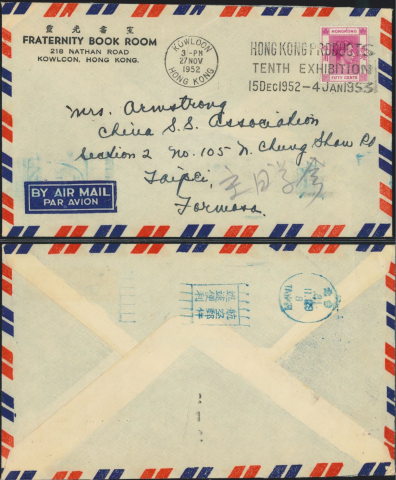 靈光書室
FRATERNITY BOOK ROOM
218 NATHAN ROAD
KOWLOON, HONG KONG.
KOWLOON
3 - PM
27 NOV
1952
HONG KONG
HONG KONG PRODUCTS
TENTH EXHIBITION
15 DEC 1952 – 4 JAN 1953
HONGKONG
FIFTY CENTS
Mrs. Armstrong
China S.S. Association
Section 2 No. 105 N. Chung Shan Rd
Taipei,
Formosa.
主日學
BY AIR MAIL
PAR AVION
航空郵件
迅速便利
41
11 29
8